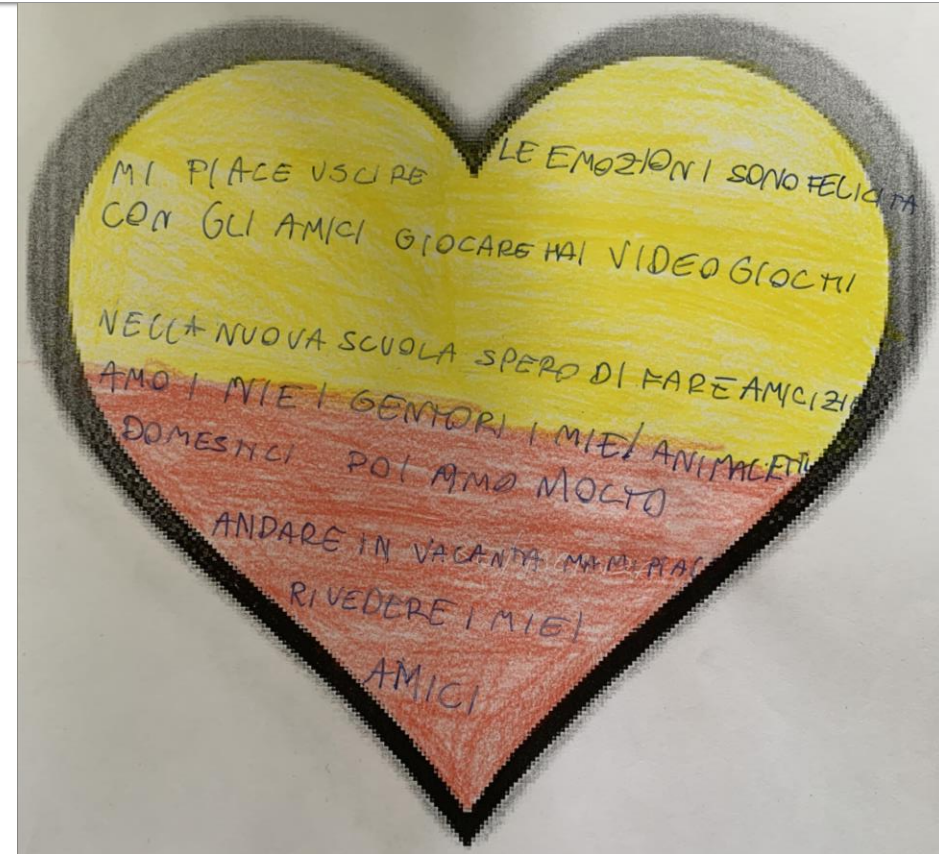 LE EMOZIONI SONO FELICITA
MI PIACE USCIRE
CON GLI AMICI GIOCARE HAI VIDEO GIOCHI
NELLA NUOVA SCUOLA SPERO DI FARE AMICIZIE
AMO I MIEI GENITORI I MIEI ANIMALETTI
DOMESTICI POI AMO MOLTO
ANDARE IN VACANZA MA MI PIAC
RIVEDERE I MIEI
AMICI